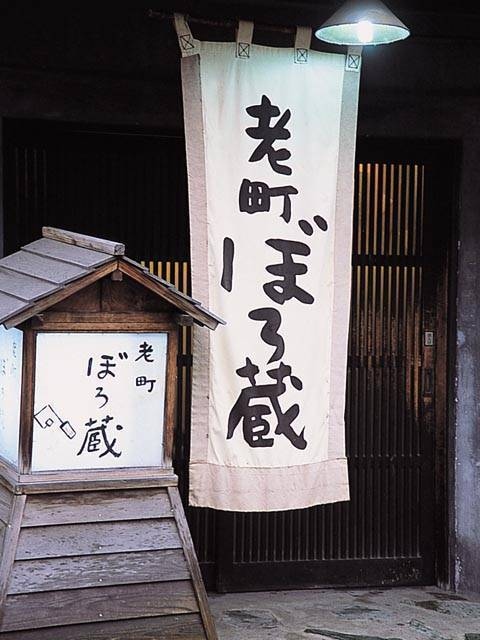 老町
ぼろ蔵
老町
ぼろ蔵